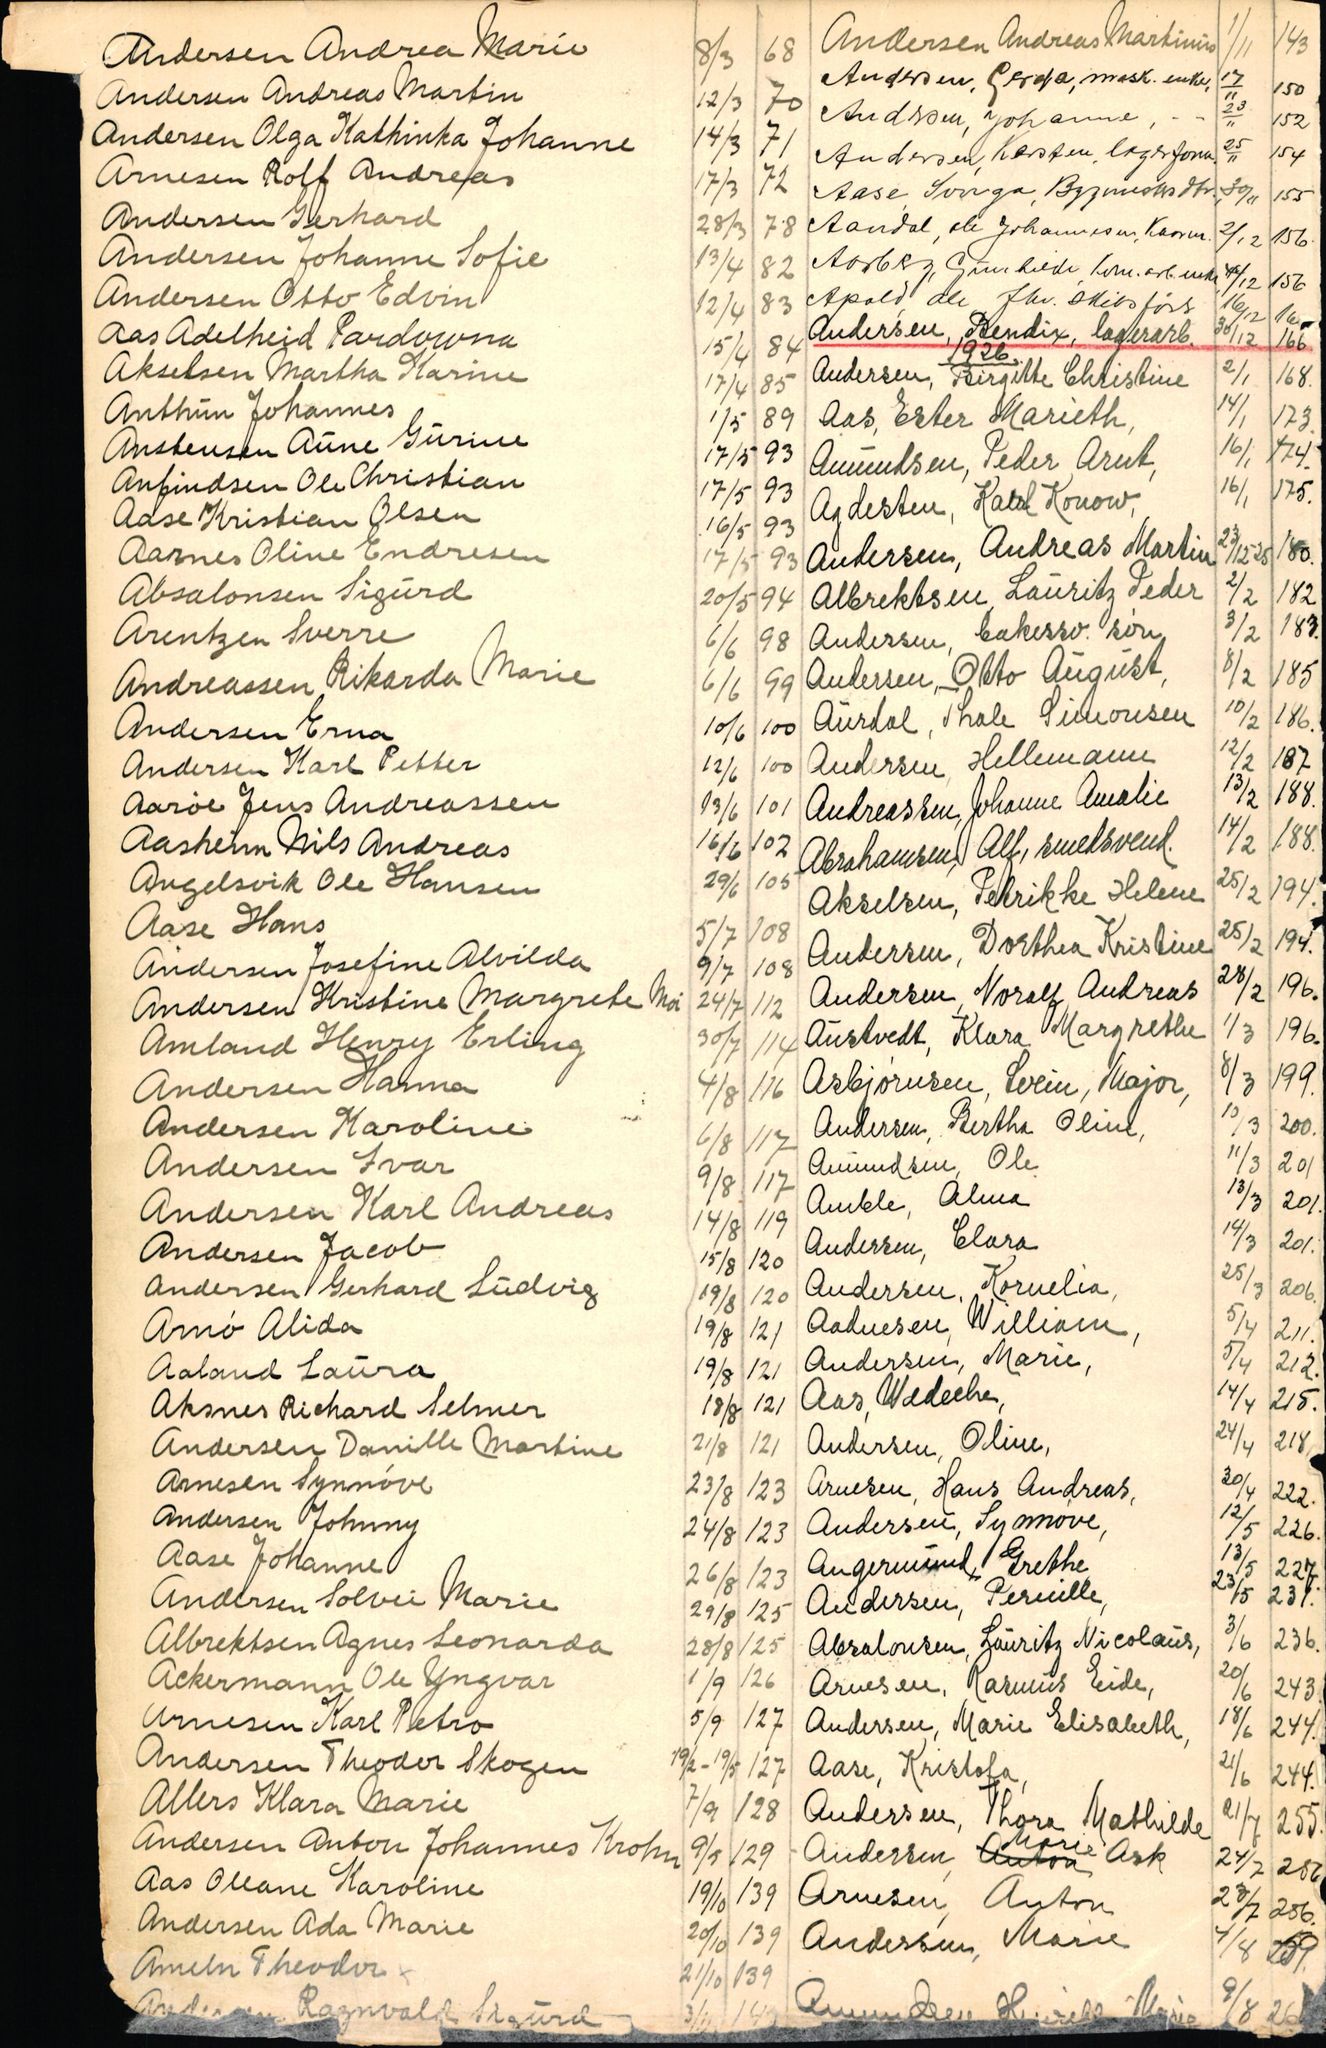 Andersen Andrea Marie 8/3 68
Andersen Andreas Martin 12/3 70
Andersen Olga Kathinka Johanne 14/3 71
Arnesen Rolf Andreas 17/3 72
Andersen Gerhard 28/3 78
Andersen Johanne Sofie 13/4 82
Andersen Otto Edvin 12/4 83
Aas Adelheid 15/4 84
Akselsen Martha Karine 17/4 85
Anthun Johannes 1/5 89
Anstensen Aune Gurine 17/5 93
Anfindsen Ole Christian 17/5 93
Aase Kristian Olsen 16/5 93
Aarnes Oline Endresen 17/5 93
Absalonsen Sigurd 20/5 94
Arentzen Sverre 6/6 98
Andreassen Rikarda Marie 6/6 99
Andersen Erna 10/6 100
Andersen Karl Petter 12/6 100
Aarøe Jens Andreassen 13/6 101
Aasheim Nils Andreas 16/6 102
Angelsvik Ole Hansen 29/6 105
Aase Hans 5/7 108
Andersen Josefine Alvilda 9/7 108
Andersen Kristine Margrete Moi 24/7 112
Amland Henry Erling 30/7 114
Andersen Hanna 4/8 116
Andersen Karoline 6/8 117
Andersen Ivar 9/8 117
Andersen Karl Andreas 14/8 119
Andersen Jacob 15/8 120
Andersen Gerhard Ludvig 19/8 120
Arnø Alida 19/8 121
Aaland Laura 19/8 121
Aksnes Richard Selmer 18/8 121
Andersen Danille Martine 21/8 121
Arnesen Synnøve 23/8 123
Andersen Johnny 24/8 123
Aase Johanne 26/8 123
Andersen Solvei Marie 29/8 125
Albrektsen Agnes Leonarda 28/8 125
Ackermann Ole Yngvar 1/9 126
Arnesen Karl Petro 5/9 127
Andersen Theodor Skogen 19/2-19/5 127
Allers Klara Marie 7/9 128
Andersen Anton Johannes Krohn 9/5 129
Aas Oleane Karoline 19/10 139
Andersen Ada Marie 20/10 139
Ameln Theodor x 21/10 139
Andersen Ragnvald Sigurd
Andersen Andreas Martinius 1/11 143
Andersen, Gerda, mask. enke, 17/11 150
Andersen, Johanne, - - 23/11 152
Andersen, Karsten, lagerform. 25/11 154
Aase, Svinga, 30/11 155
Aandal, Ole Johannesen, 2/12 156.
Aarberg, Gunhilde, kom. arb. enke /12 156
Apold, Ole 16/12
Andersen, Bendix, lagerarb. 30/12 166
1926.
Andersen, Birgitte Christine 2/1 168.
Aas, Ester Marieth, 14/1 173.
Amundsen, Peder Arnt, 16/1 174.
Agdesten, Karl Konow, 16/1 175.
Andersen, Andreas Martin 23/12 25 180.
Albrektsen, Lauritz Peder 2/2 182
Andersen, søn 3/2 183.
Andersen, Otto August, 8/2 185
Aurdal, Thale Simonsen 10/2 186.
Andersen, Hellemann 12/2 187
Andreassen, Johanne Amalie 13/2 188.
Abrahamsen, Alf, smedsvend. 14/2 188.
Akselsen, Petrikke Helene 25/2 194.
Andersen, Dorthea Kristine 25/2 194.
Andersen, Noralf Andreas 28/2 196.
Austvedt, Klara Margrethe 1/3 196.
Asbjørnsen, Svein, Major, 8/3 199.
Andersen, Bertha Oline, 10/3 200.
Amundsen, Ole 11/3 201
Amble, Alma 13/3 201.
Andersen, Clara 14/3 201.
Andersen, Kornelia, 25/3 206.
Aadnesen, William, 5/4 211.
Andersen, Marie, 5/4 212.
Aas, Wedeche, 14/4 215.
Andersen, Oline, 24/4 218
Arnesen, Hans Andreas, 30/4 222.
Andersen, Synnøve, 12/5 226.
Angermund, Grethe 13/5 227.
Andersen, Pernille, 23/5 231.
Absalonsen, Lauritz Nicolaus, 3/6 236.
Arnesen, Rasmus Eide, 20/6 243
Andersen, Marie Elisabeth, 18/6 244.
Aase, Kristofa, 21/6 244.
Andersen, Thora Mathilde 21/7 255.
Andersen, Anton Marie Ask 24/7 256
Arnesen, Anton 28/7 256.
Andersen, Marie 4/8 259.
9/8